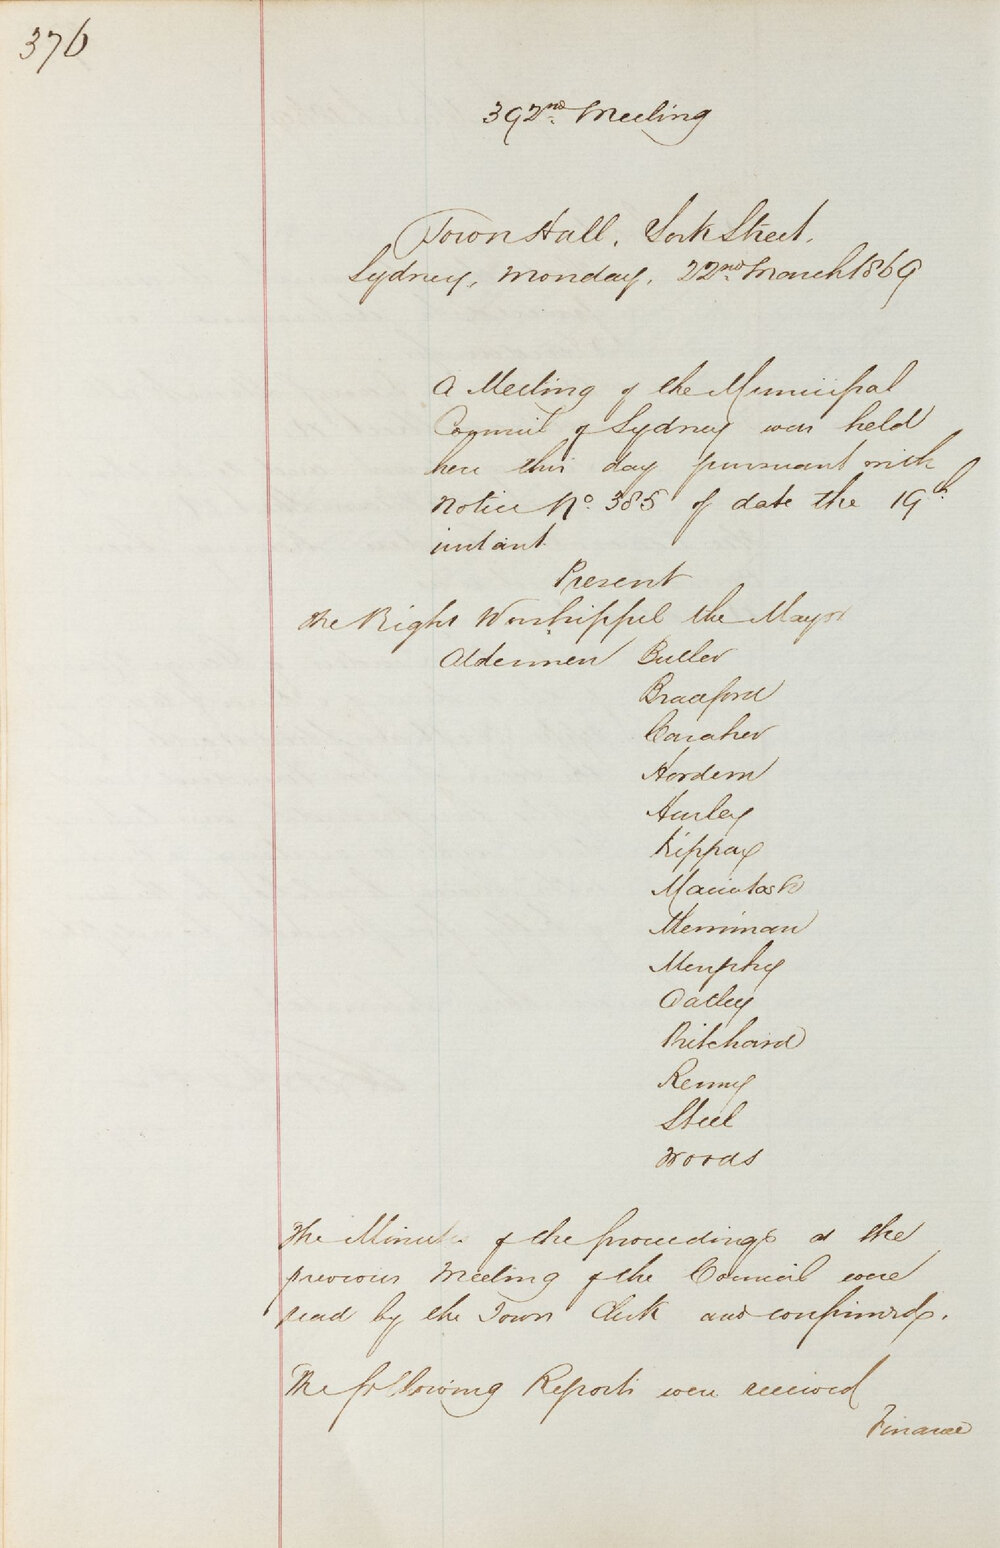 376
392nd Meeting
Town Hall, York Street.
Sydney, Monday, 22nd March 1869
A Meeting of the Municipal
Council of Sydney was held
here this day pursuant with
Notice No. 385 of date the 19th
instant
Present
The Right Worshipful the Mayor
Aldermen Butler
Bradford
Caraher
Hordern
Hurley
Kippax
Macintosh
Merriman
Murphy
Oatley
Pritchard
Renny
Steel
Woods
The Minutes of the proceedings at the
previous Meeting of the Council were
read by the Town Clerk and confirmed.
The following Reports were received
Finance